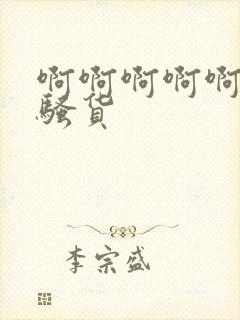 啊啊啊啊啊
骚货
李宗盛